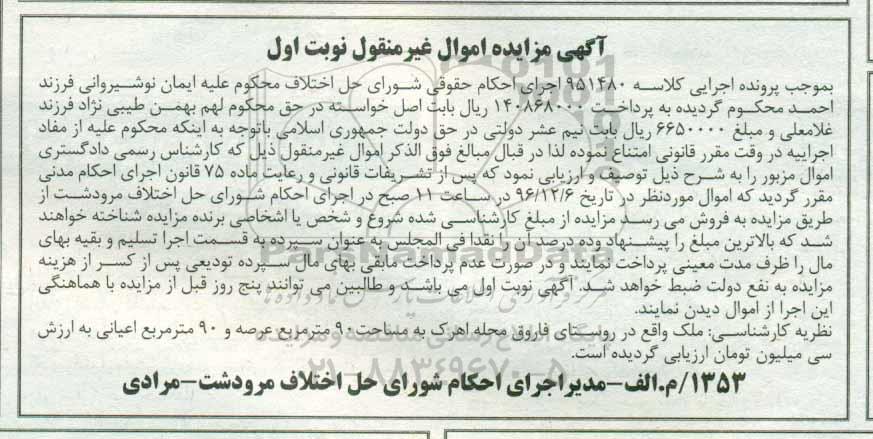 آگهی مزایده اموال غیرمنقول نوبت اول
بموجب پرونده اجرایی کلاسه ۹۵۱۴۸۰ اجرای احکام حقوقی شورای حل اختلاف محکوم علیه ایمان نوشیروانی فرزند
احمد محکوم گردیده به پرداخت ۱۴۰۸۶۸۰۰۰ ریال بابت اصل خواسته در حق محکوم لهم بهمن طیبی نژاد فرزند
غلامعلی و مبلغ ۶۶۵۰۰۰۰ ریال بابت نیم عشر دولتی در حق دولت جمهوری اسلامی باتوجه به اینکه محکوم علیه از مفاد
اجراییه در وقت مقرر قانونی امتناع نموده لذا در قبال مبالغ فوق الذکر اموال غیرمنقول ذیل که کارشناس رسمی دادگستری
اموال مزبور را به شرح ذیل توصیف و ارزیابی نمود که پس از تشریفات قانونی و رعایت ماده ۷۵ قانون اجرای احکام مدنی
مقرر گردید که اموال موردنظر در تاریخ ۹۶/۱۲/۶ در ساعت ۱۱ صبح در اجرای احکام شورای حل اختلاف مرودشت از
طریق مزایده به فروش می رسد مزایده از مبلغ کارشناسی شده شروع و شخص یا اشخاصی برنده مزایده شناخته خواهند
شد که بالاترین مبلغ را پیشنهاد وده درصد آن را نقدا فی المجلس به عنوان سپرده به قسمت اجرا تسلیم و بقیه بهای
مال را ظرف مدت معینی پرداخت نمایند و در صورت عدم پرداخت مابقی بهای مال سپرده تودیعی پس از کسر از هزینه
مزایده به نفع دولت ضبط خواهد شد. آگهی نوبت اول می باشد و طالبین می توانند پنج روز قبل از مزایده با هماهنگی
این اجرا از اموال دیدن نمایند.
نظریه کارشناسی: ملک واقع در روستای فاروق محله اهرک به مساحت ۹۰ مترمربع عرصه و ۹۰ مترمربع اعیانی به ارزش
سی میلیون تومان ارزیابی گردیده است.
۱۳۵۳/م.الف-مدیراجرای احکام شورای حل اختلاف مرودشت-مرادی
ParsNamadData
۰۲۱-۸۸۳۴۹۶۷۰-۵